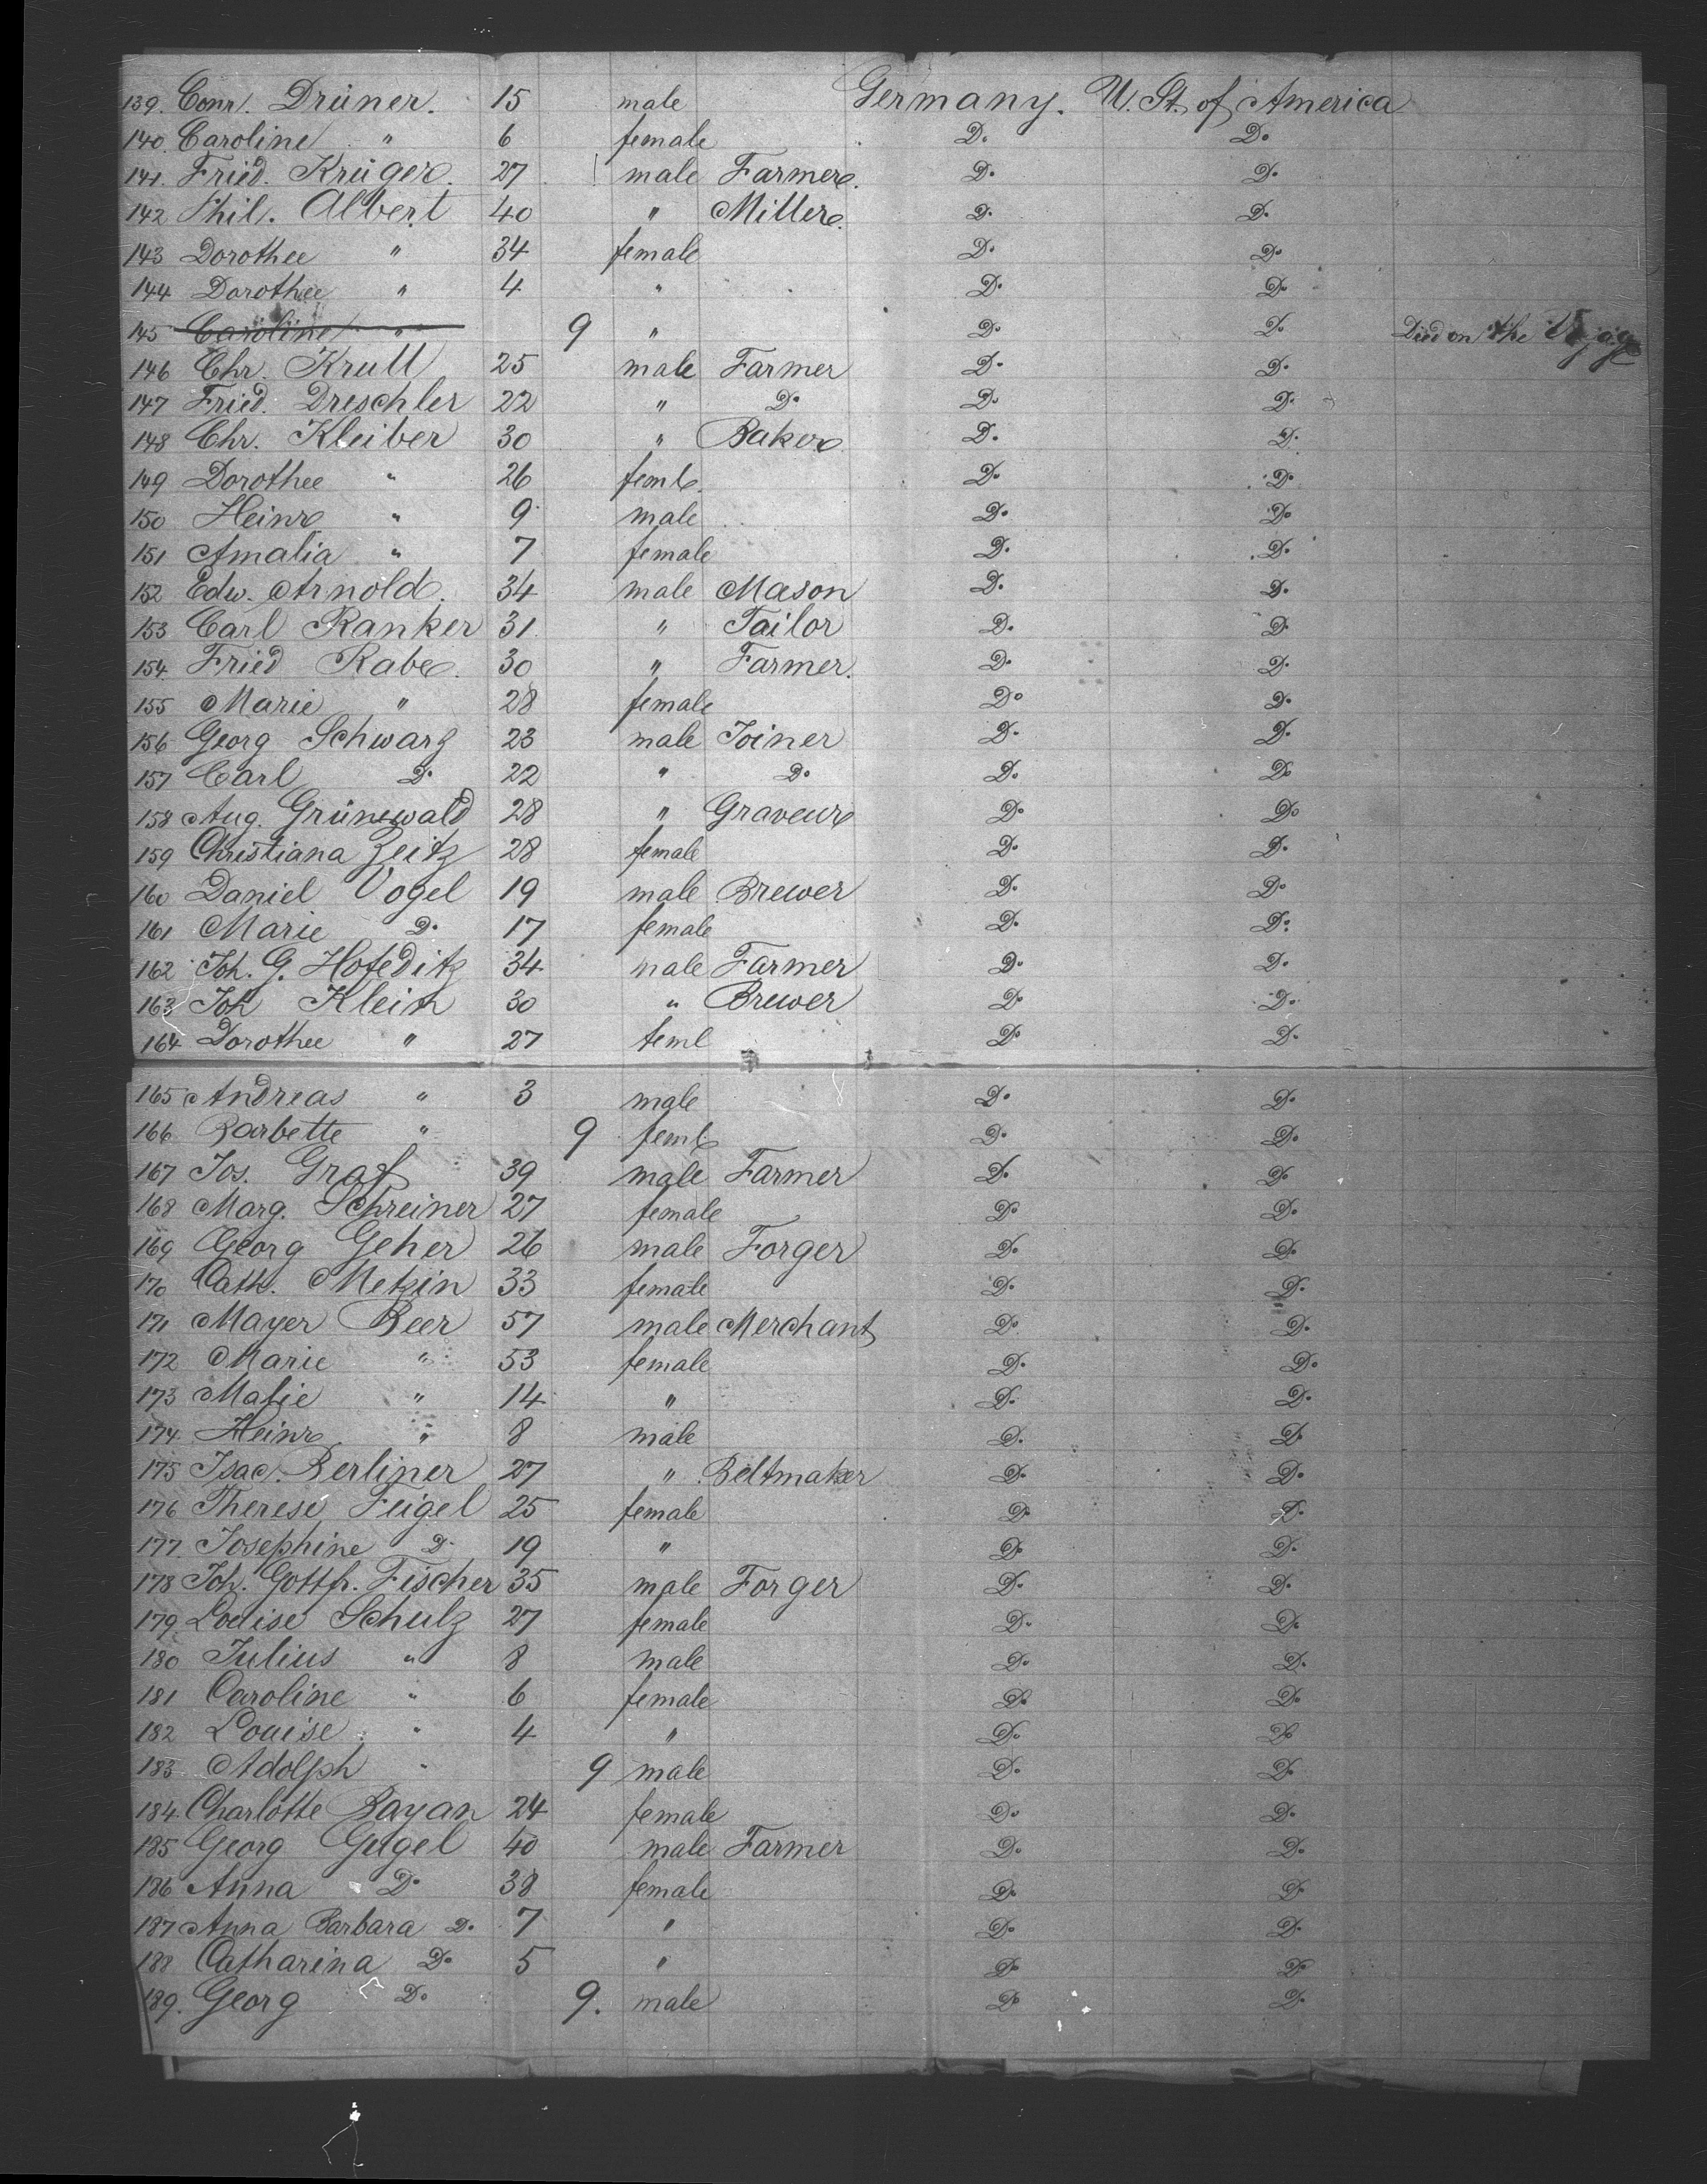 139. Conr. Drüner. 15 male Germany. U. St. of America
140. Caroline " 6 female Do Do
141. Fried. Krüger. 27 male Farmer. Do Do
142 Phil. Albert 40 " Miller. Do Do
143 Dorothee " 34 female Do Do
144 Dorothee " 4 " Do Do
145 Caroline " 9 " Do Do Died on the
146 Chr. Krull 25 male Farmer Do Do
147 Fried. Dreschler 22 " Do Do Do
148 Chr. Kleiber 30 " Baker Do Do
149 Dorothee " 26 feml. Do Do
150 Heinr " 9 male Do Do
151 Amalia " 7 female Do Do
152 Edw. Arnold. 34 male Mason Do Do
153 Carl Ranker 31 " Tailor Do Do
154 Fried Rabe. 30 " Farmer. Do Do
155 Marie " 28 female Do Do
156 Georg Schwarz 23 male Joiner Do Do
157 Carl Do 22 " Do Do Do
158 Aug. Grünewald 28 " Graveur Do Do
159 Christiana Zeitz 28 female Do Do
160 Daniel Vogel 19 male Brewer Do Do
161 Marie Do 17 female Do Do
162 Joh. G. Hofeditz 34 male Farmer Do Do
163 Joh Klein 30 " Brewer Do Do
164 Dorothee " 27 feml Do Do
165 Andreas " 3 male Do Do
166 Barbette " 9 feml. Do Do
167 Jos. Graf 39 male Farmer Do Do
168 Marg. Schreiner 27 female Do Do
169 Georg Geher 26 male Forger Do Do
170 Cath. Metzin 33 female Do Do
171 Mayer Beer 57 male Merchant Do Do
172 Marie " 53 female Do Do
173 " 14 " Do Do
174 Heinr " 8 male Do Do
175 Isac. Berliner 27 " Beltmaker Do Do
176 Therese Feigel 25 female Do Do
177. Josephine Do 19 " Do Do
178 Joh. Gottfr. Fischer 35 male Forger Do Do
179 Louise Schulz 27 female Do Do
180 Julius " 8 male Do Do
181 Caroline " 6 female Do Do
182 Louise " 4 " Do Do
183 Adolph " 9 male Do Do
184 Charlotte Bayan 24 female Do Do
185 Georg Gugel 40 male Farmer Do Do
186 Anna Do 38 female Do Do
187 Anna Barbara Do 7 " Do Do
188 Catharina Do 5 " Do Do
189. Georg Do 9. male Do Do